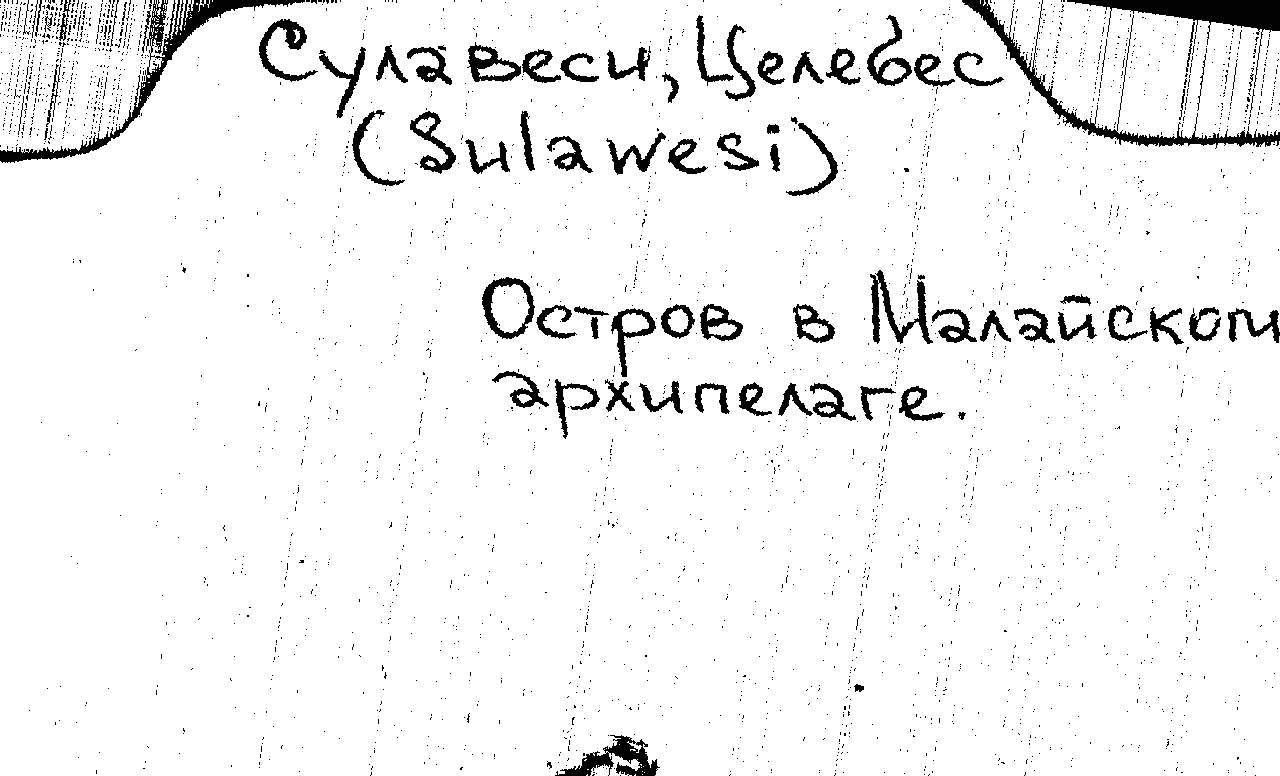 Сулавеси, Целебес
(Sulawesi)
Остров в Малайском
архипелаге.